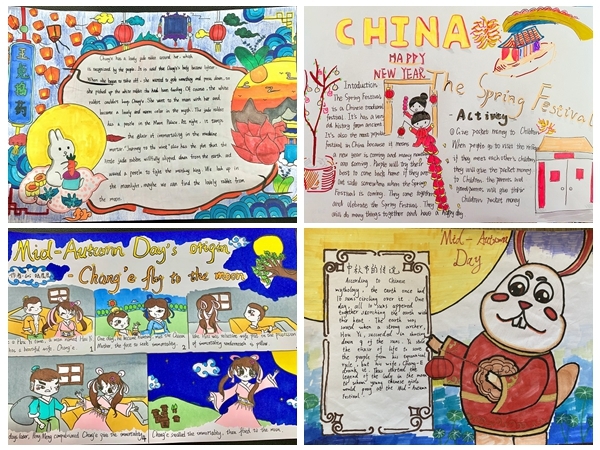 玉兔捣药
Chang'e has a lively jade rabbit around her, which
is recognized by the people. It is said that Chang'e's body became lighter
When she began to take off, she wanted to grab something and press down, so
she picked up the white rabbit she had been feeding. Of course, the white
rabbit couldn't keep Chang'e. She went to the moon with her and
became a lonely and warm color in the night. The jade rabbit
has a pestle in the Moon Palace. At night, it tamps
the elixir of immortality in the medicine
mortar. "Journey to the West" also has the plot that the
little jade rabbit willfully slipped down from the earth and
wanted a people to fight the monkey king. We look up in
the moonlight, maybe we can find the lovely rabbit from
the moon.
CHINA
HAPPY
NEW YEAR
The Spring Festival
Introduction
The Spring Festival
is a Chinese traditional
festival. It's has a very
old history from ancient.
It's also the most popular
festival in China because it means
a new year is coming and many
are coming. People will try their
best to come back home if they are
Festival is coming. They come together
and celebrate the Spring Festival. They
will do many things together and have a happy day
Activity
① Give packet money to Children
When people go to visit the relatives
if they meet each other's children,
they will give the packet money
to Children. Grandparents and
parents will give their
Children packet money
Mid-Autumn Day's origin
- Chang'e fly to the moon
is Hou Yi came, a man named Hou Yi
has a beautiful wife, Chang'e.
1
One day, he became
Mother, she gave to
2
Hou Yi's was
of immortality
3
days later, Peng Meng compulsioned Chang'e gave the immortality
4
Chang'e swalled the immortality, then flied to the moon.
Mid-Autumn
Day
中秋节的传说
According to Chinese
mythology, the earth once had
10 suns circling over it. One
day, all 10 suns appeared
together scorching the earth with
their heat. The earth was
saved when a strong archer,
Hou Yi, succeeded in shooting
down 9 of the suns. Yi stole
the elixir of life to save
the people from his tyrannical
rule, but his wife, Chang-E
drank it. Thus started the
legend of the lady in the moon
to whom young Chinese girls
would pray at the Mid-Autumn
Festival.